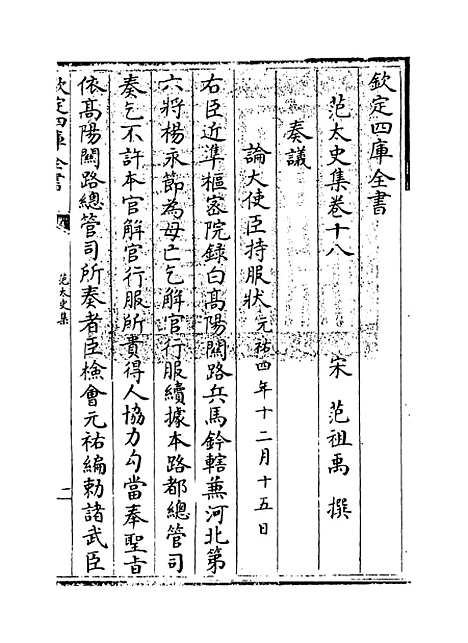 欽定四庫全書
范太史集卷十八
宋 范祖禹 撰
奏議
論大使臣持服狀 元祐四年十二月十五日
右臣近準樞宻院録白髙陽關路兵馬鈐轄蕪河北第
六將楊永節為母亡乞解官行服續據本路都總管司
奏乞不許本官解官行服所貴得人協力勾當奉聖㫖
依髙陽關路總管司所奏者臣檢㑹元祐編勅諸武臣
欽定四庫全書
范太史集